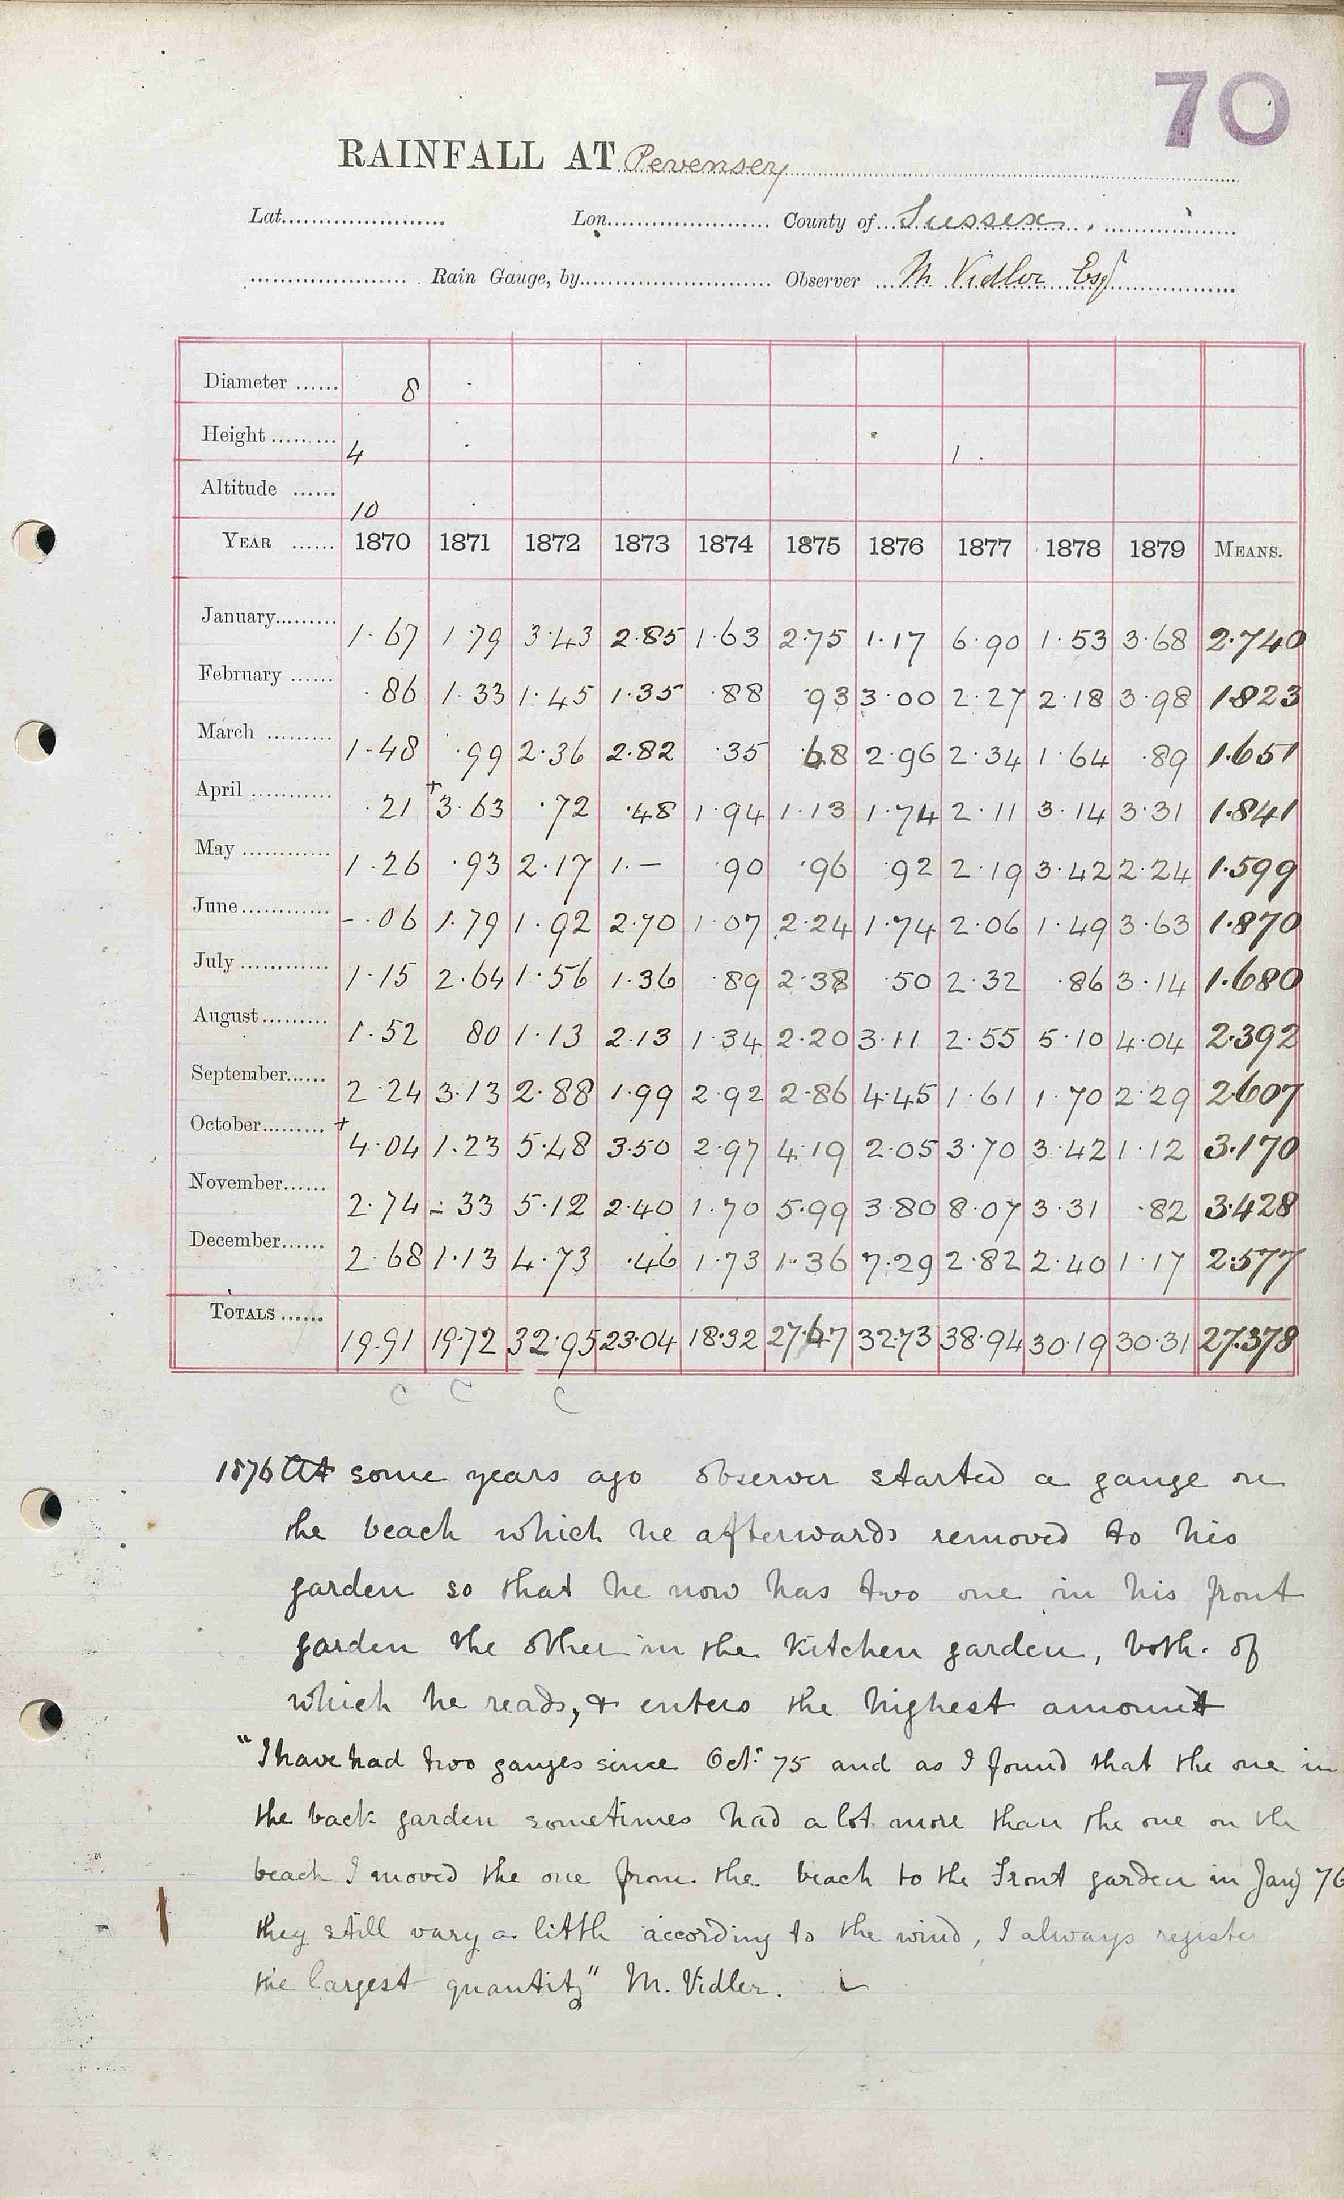 70
RAINFALL AT Pevensey
Lat. Lon. County of Sussex
Rain Gauge, by Observer M Vidler Esq
Diameter 8
Height 4 1
Altitude 10
YEAR 1870 1871 1872 1873 1874 1875 1876 1877 1878 1879 MEANS.
January 1.67 1.79 3.43 2.85 1.63 2.75 1.17 6.90 1.53 3.68 2.740
February .86 1.33 1.45 1.35 .88 .93 3.00 2.27 2.18 3.98 1.823
March 1.48 .99 2.36 2.82 .35 .68 2.96 2.34 1.64 .89 1.651
April .21 +3.63 .72 .48 1.94 1.13 1.74 2.11 3.14 3.31 1.841
May 1.26 .93 2.17 1.– .90 .96 .92 2.19 3.42 2.24 1.599
June –.06 1.79 1.92 2.70 1.07 2.24 1.74 2.06 1.49 3.63 1.870
July 1.15 2.64 1.56 1.36 .89 2.38 .50 2.32 .86 3.14 1.680
August 1.52 80 1.13 2.13 1.34 2.20 3.11 2.55 5.10 4.04 2.392
September 2.24 3.13 2.88 1.99 2.92 2.86 4.45 1.61 1.70 2.29 2.607
October +4.04 1.23 5.48 3.50 2.97 4.19 2.05 3.70 3.42 1.12 3.170
November 2.74 –.33 5.12 2.40 1.70 5.99 3.80 8.07 3.31 .82 3.428
December 2.68 1.13 4.73 .46 1.73 1.36 7.29 2.82 2.40 1.17 2.577
TOTALS 19.91 19.72 32.95 23.04 18.32 27.67 32.73 38.94 30.19 30.31 27.378
C C C
1876 some years ago observer started a gauge on
the beach which he afterwards removed to his
garden so that he now has two one in his front
garden the other in the kitchen garden, both of
which he reads, & enters the highest amount
"I have had two gauges since Oct. 75 and as I found that the one in
the back garden sometimes had a lot more than the one on the
beach I moved the one from the beach to the Front garden in Jany 76
they still vary a little according to the wind, I always register
the largest quantity" M. Vidler.